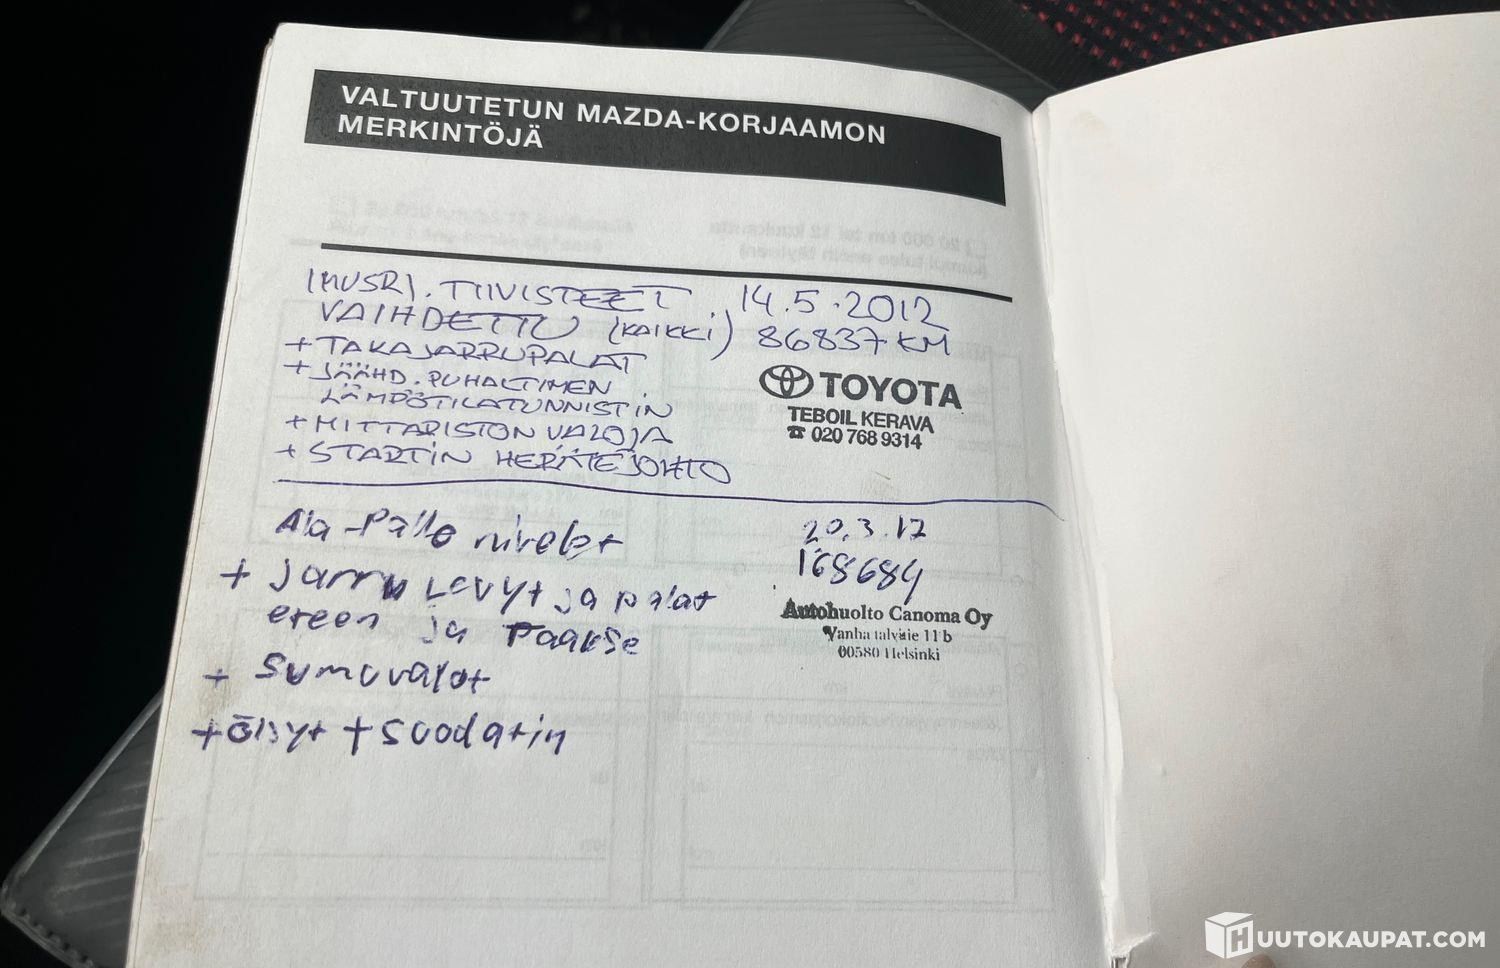 VALTUUTETUN MAZDA-KORJAAMON
MERKINTÖJÄ
TIIVISTEET 14.5.2012
VAIHDETTU (KAIKKI) 86837 KM
+ TAKAJARRUPALAT
+ JÄÄHD. PUHALTIMEN
LÄMPÖTILATUNNISTIN
+ MITTARISTON VALOJA
+ STARTIN HERÄTEJOHTO
TOYOTA
TEBOIL KERAVA
☎ 020 768 9314
Ala-Pallo nivelet 20.3.17
168684
+ Jarru Levyt ja palat
eteen ja Taakse
+ Sumuvalot
+ öljyt + suodatin
Autohuolto Canoma Oy
Vanha talvitie 11 b
00580 Helsinki
HUUTOKAUPAT.COM